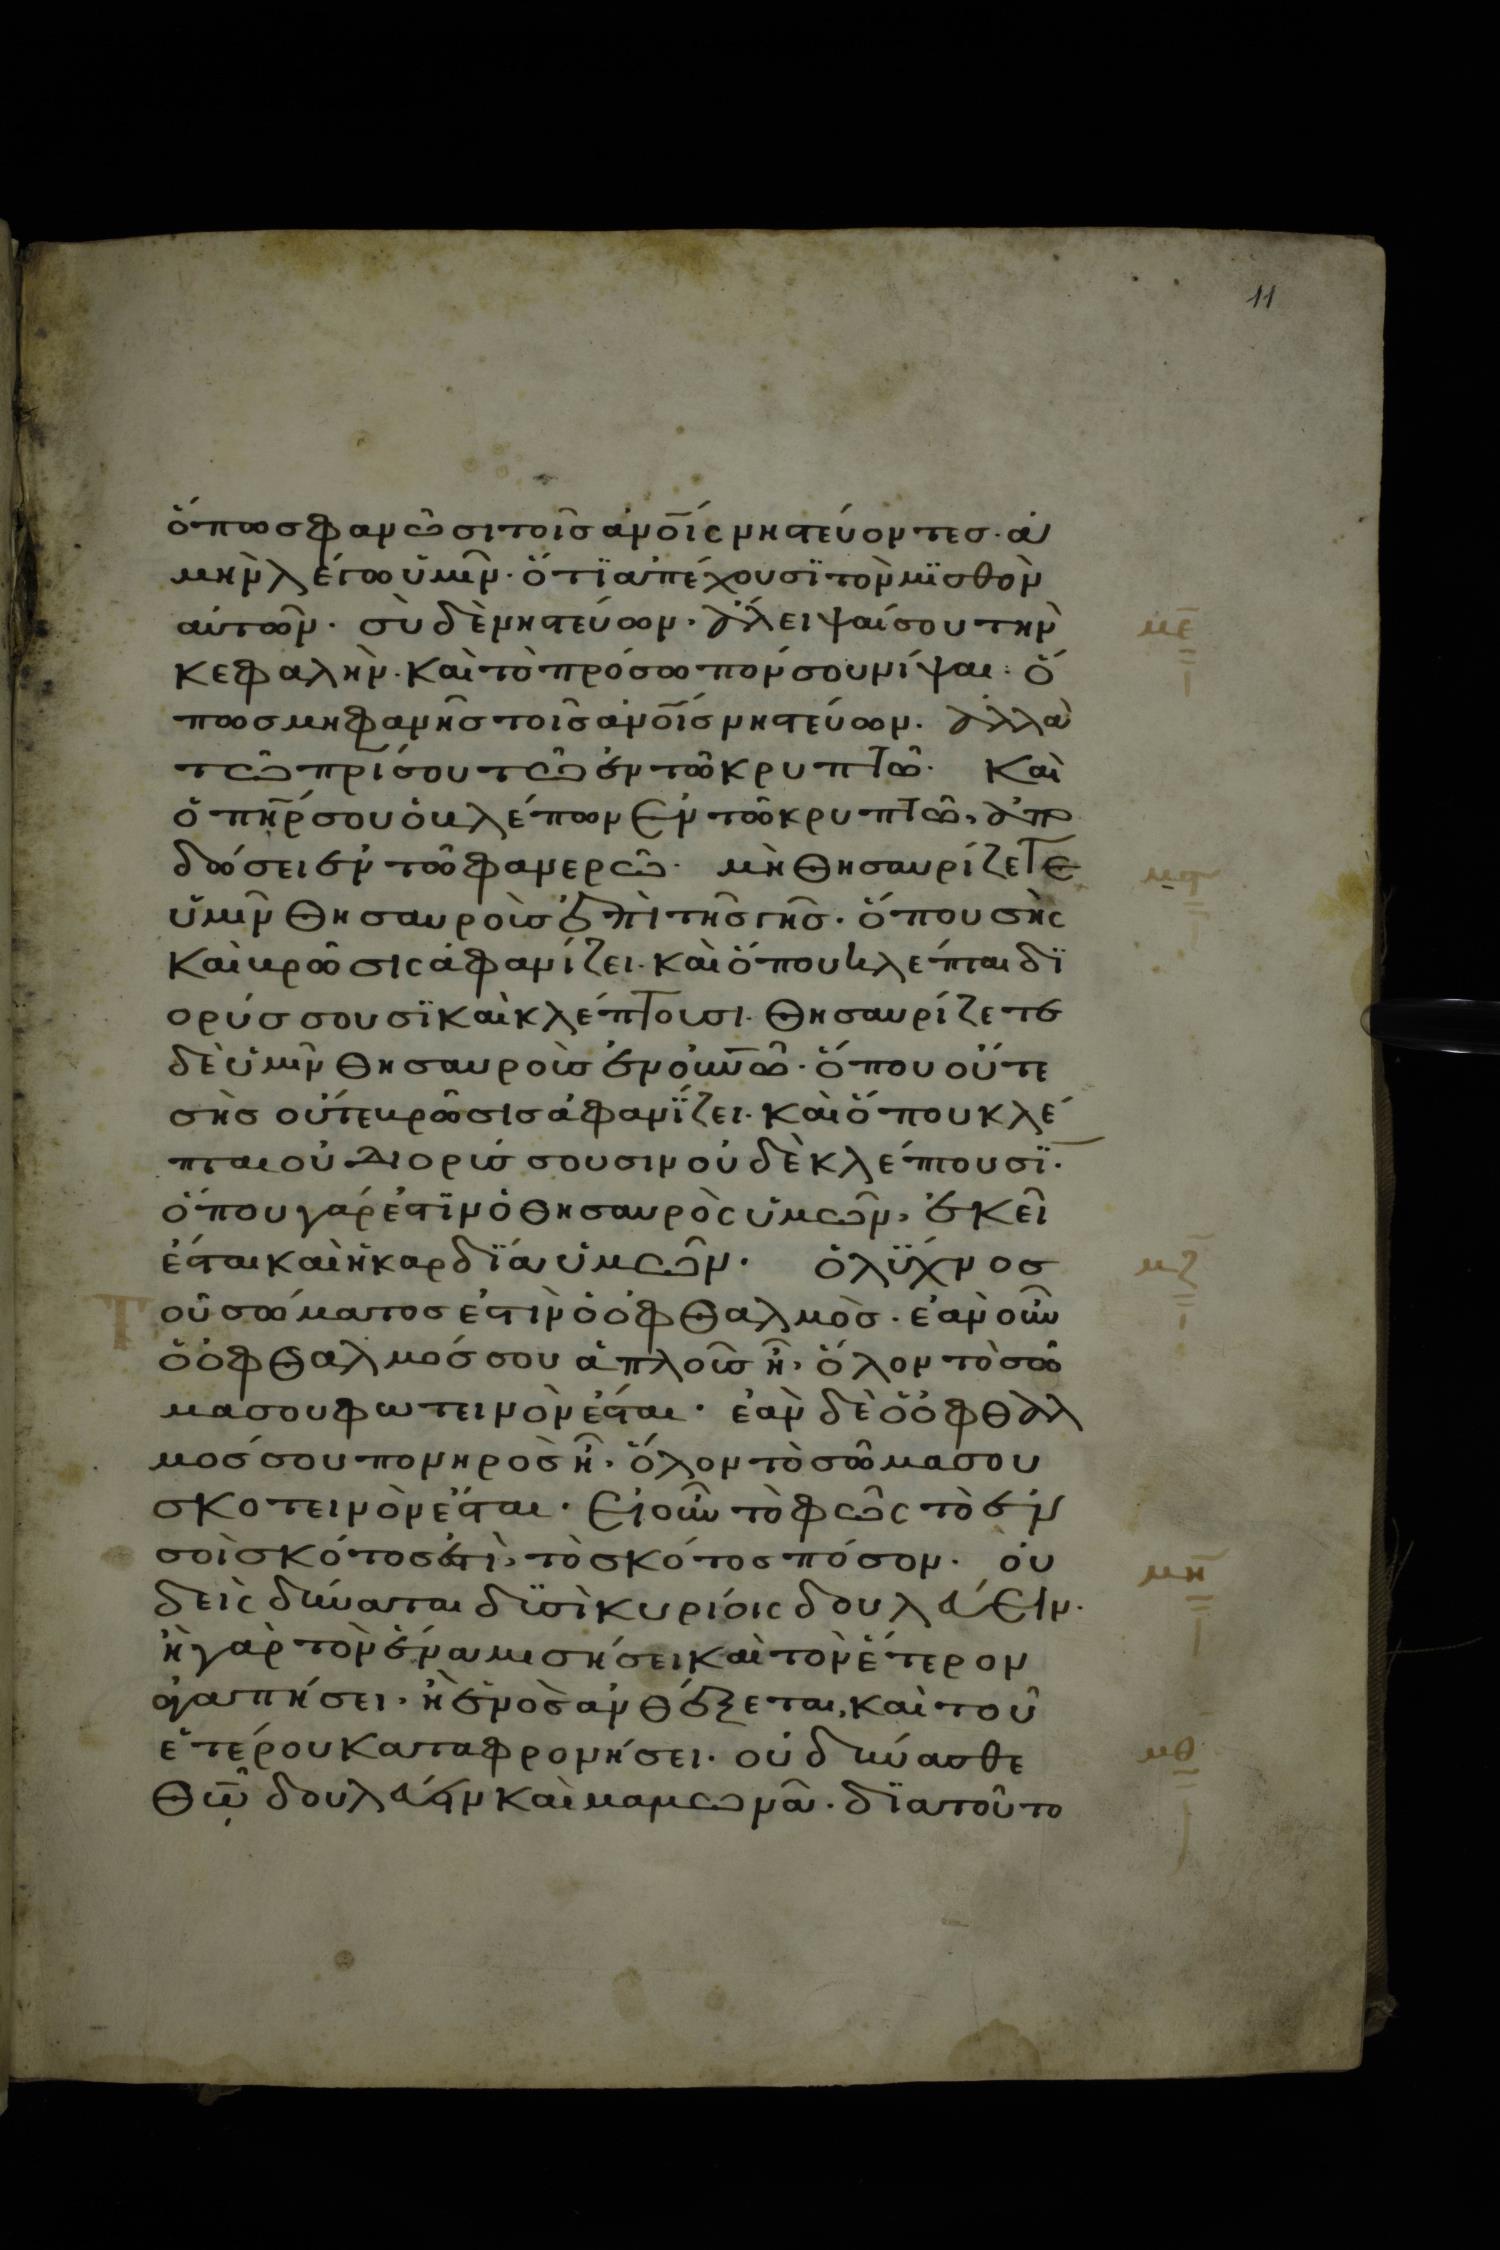 11
ὅπωσ φανῶσι τοῖσ ἀνοῖς νηστεύοντεσ· ἀ
μὴν λέγω ὑμῖν· ὅτϊ ἀπέχουσϊ τὸν μϊσθὸν
αὐτῶν· σὺ δὲ νηστεύων· ἄλειψαί σου τὴν
κεφαλὴν· καὶ τὸ πρόσωπόν σου νίψαι· ὅ
πωσ μη φανῆσ τοῖσ ἀνοῖσ νηστεύων· ἀλλὰ
τῶ πρί σου τῶ ἐν τῶ κρυπτῶ· καὶ
ὁ πηρ σου ὁ βλέπων ἐν τῶ κρυπτῶ, ἀπο
δώσει ἐν τῶ φανερῶ· μὴ θησαυρίζετε
ὑμῖν θησαυροὺσ ἐπὶ τῆσ γῆσ· ὅπου σὴς
καὶ βρῶσις ἀφανίζει· καὶ ὅπου κλέπται δϊ
ορύσσουσϊ καὶ κλέπτουσι· θησαυρίζετε
δὲ ὑμῖν θησαυροὺσ ἐν οὐνῶ· ὅπου οὔτε
σὴσ οὔτε βρῶσισ ἀφανΐζει· καὶ ὅπου κλέ
πται οὐ διορύσσουσιν οὐδὲ κλέπτουσϊ·
ὅπου γάρ ἐστϊν ὁ θησαυρὸς ὑμῶν, ἐκεῖ
ἔσται καὶ ἡ καρδϊά ὑμῶν· ὁ λϋχνοσ
Τοῦ σώματοσ ἐστὶν ὁ ὀφθαλμὸσ· ἐὰν οὖν
ὁ ὀφθαλμόσ σου ἁπλοῦσ ἦ, ὅλον τὸ σῶ
μα σου φωτεινὸν ἔσται· ἐὰν δὲ ὁ ὀφθαλ
μόσ σου πονηρὸσ ἦ· ὅλον τὸ σῶμα σου
σκοτεινὸν ἔσται· εἰ οὖν τὸ φῶς τὸ ἐν
σοὶ σκότοσ ἐστὶ, τὸ σκότοσ πόσον· οὐ
δεὶς δύναται δϋσὶ κυρίοις δουλεύειν·
ἢ γὰρ τὸν ἕνα μισήσει καὶ τὸν ἕτερον
ἀγαπήσει· ἢ ἑνὸσ ἀνθέξεται, καὶ τοῦ
ἑτέρου καταφρονήσει· οὐ δύνασθε
θῶ δουλεύειν καὶ μαμωνᾶ· δϊατοῦτο
με
μστ
μζ
μη
μθ